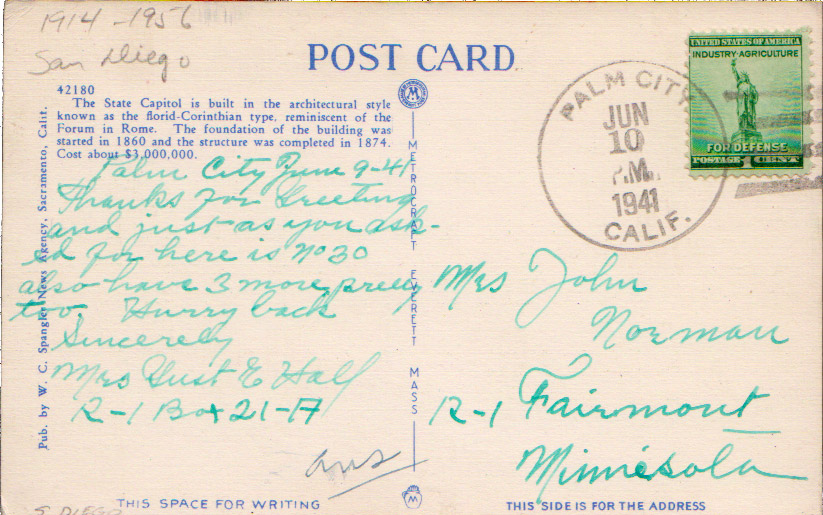 1914 - 1956
San Diego
POST CARD
42180
The State Capitol is built in the architectural style
known as the florid-Corinthian type, reminiscent of the
Forum in Rome. The foundation of the building was
started in 1860 and the structure was completed in 1874.
Cost about $3,000,000.
Palm City June 9-41
Thanks for Greeting
and just as you ask-
ed for here is No 30
also have 3 more preety
too. Hurry back
Sincerely
Mrs Gust E Hall
R-1 Box 21-A
ans
S. DIEGO
THIS SPACE FOR WRITING
Pub. by W. C. Spangler News Agency, Sacramento, Calif.
M
METROCRAFT EVERETT MASS
M
PALM CITY
JUN
10
P.M.
1941
CALIF.
UNITED STATES OF AMERICA
INDUSTRY·AGRICULTURE
FOR DEFENSE
POSTAGE 1 CENT
Mrs John
Norman
R-1 Fairmont
Minnesota
THIS SIDE IS FOR THE ADDRESS